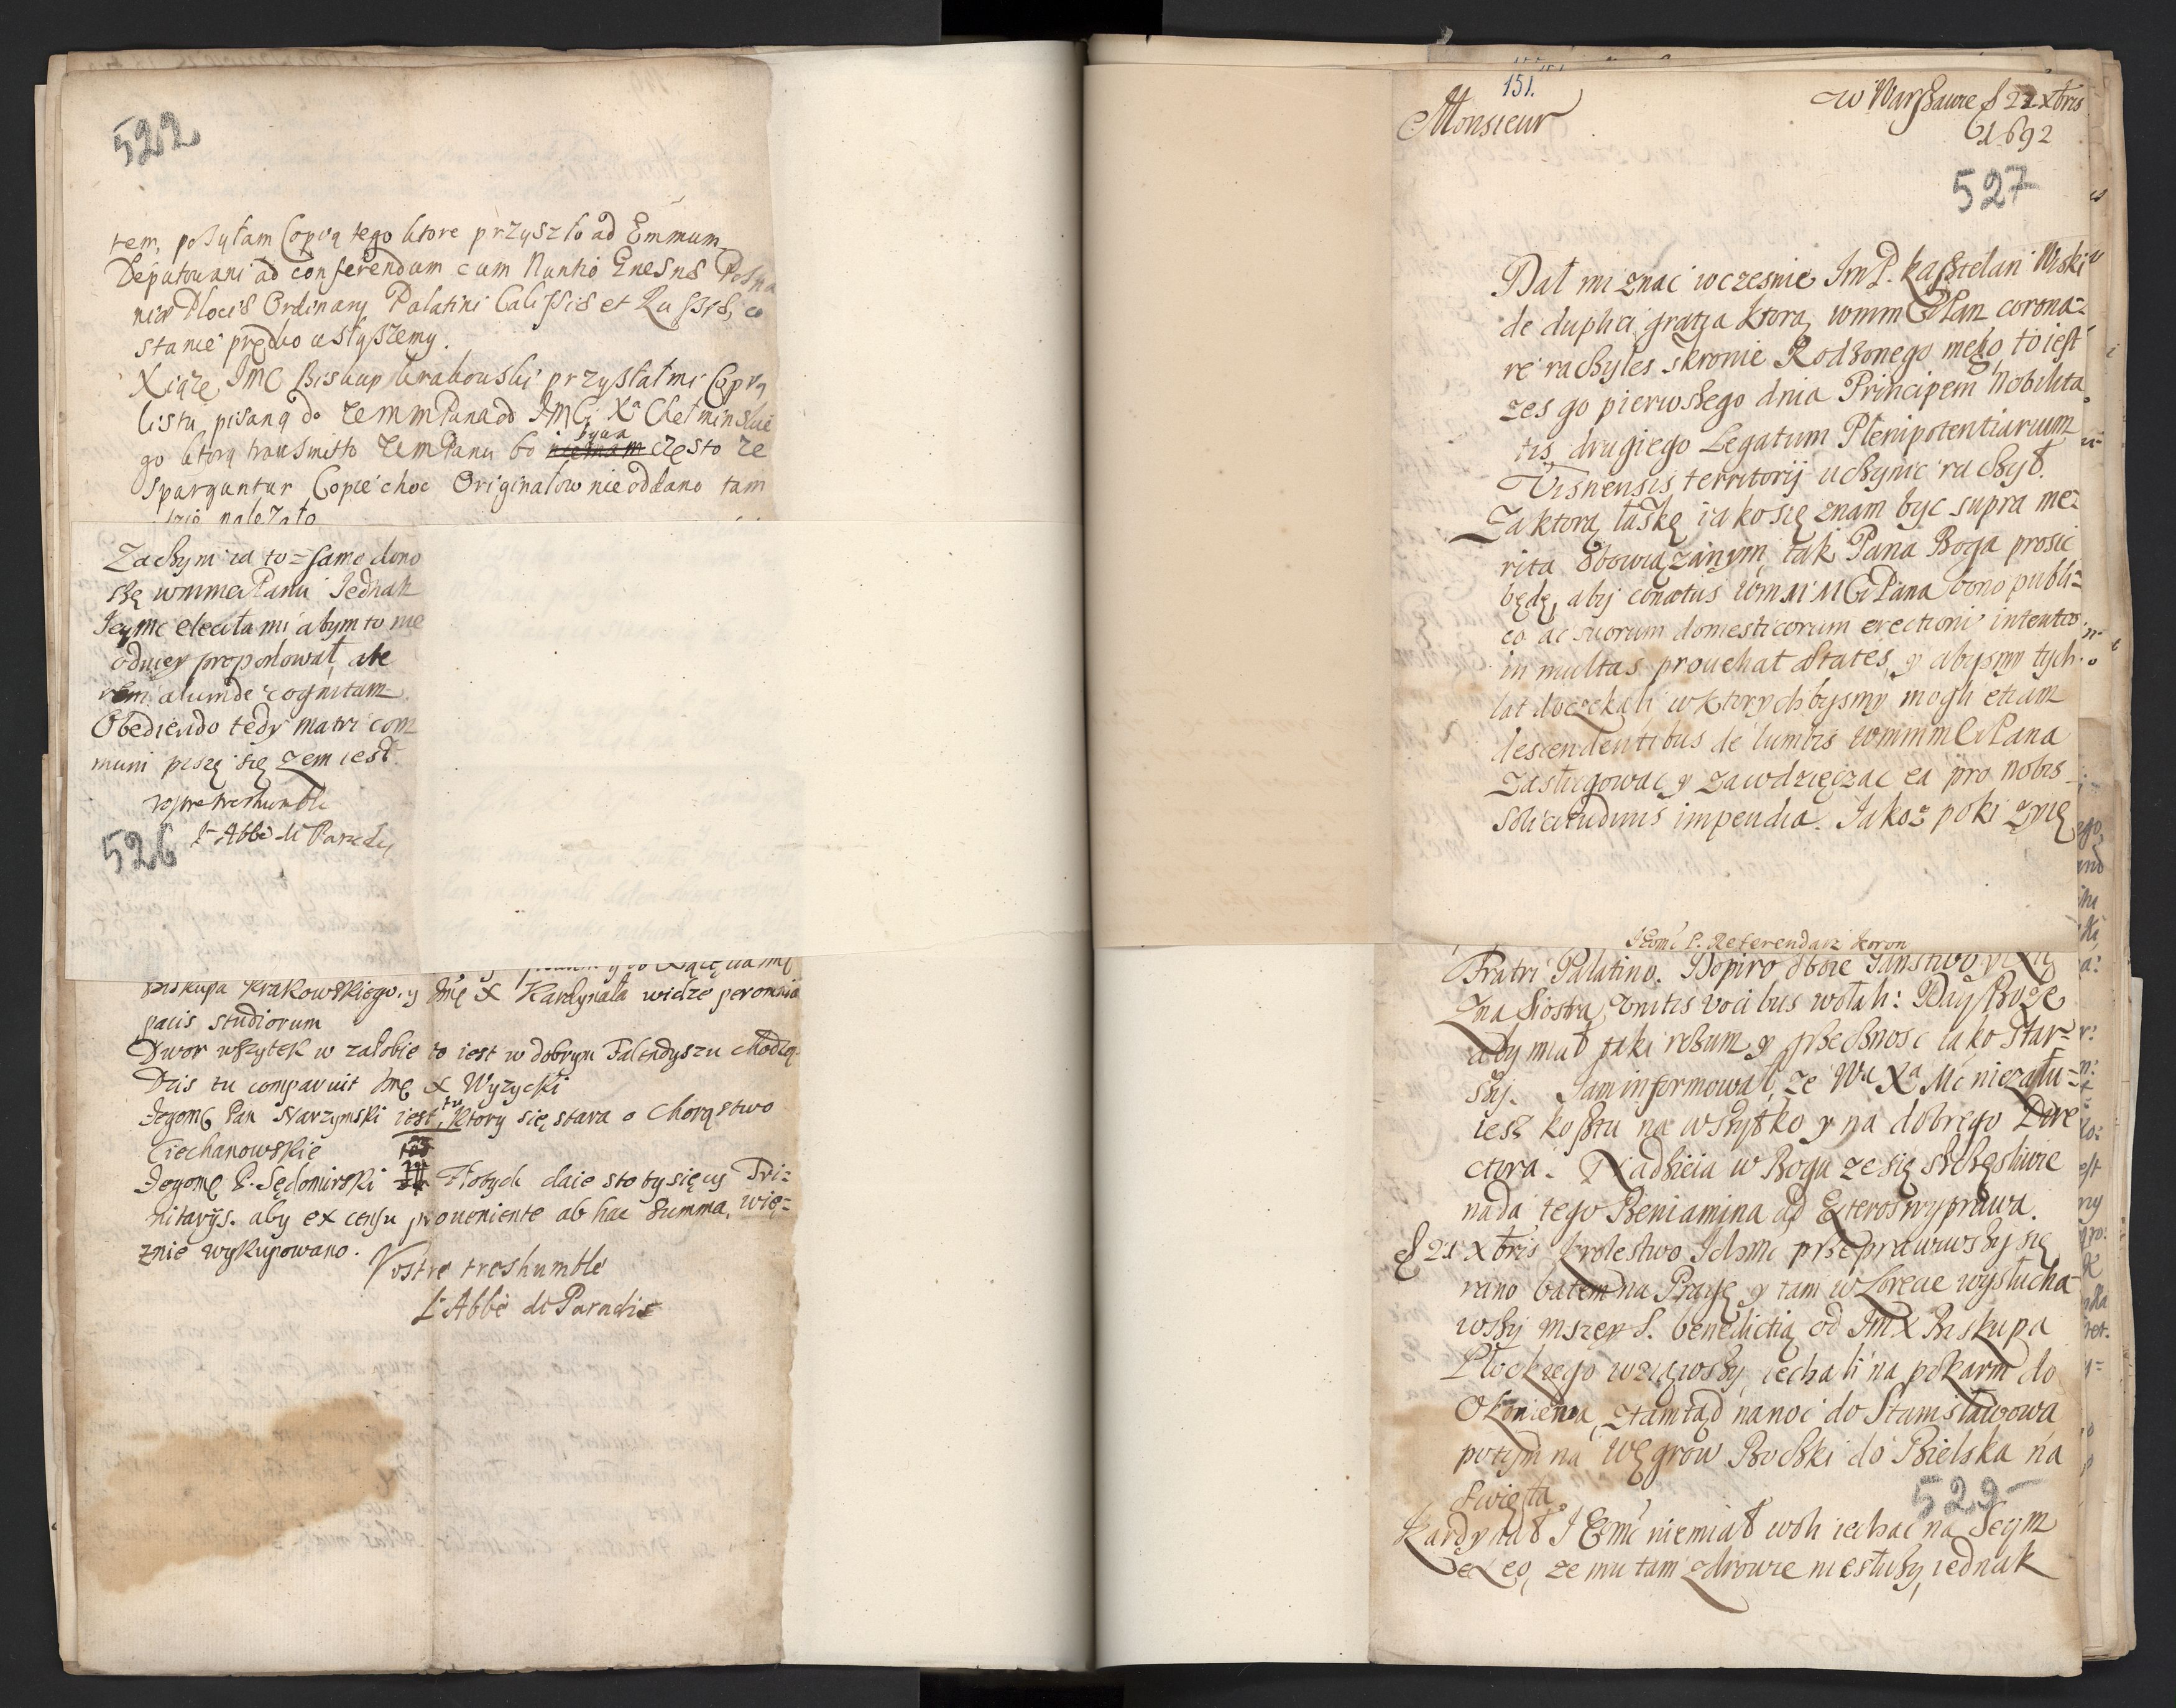 522
tem, posyłam Copią tego ktore przyszło ad Emmum
Deputowani ad conferendum cum Nuntio Gnesns Posna
nien Plocis Ordinary Palatini Calissis et Russis, co
stanie prędko usłyszemy.
Xiąże JMC Biskup krakowski przysłał mi Copią
listu pisaną do
go ktorą transmitto bo
bywa
często ze
sparguntur Copie choc Originałow nie oddano tam
gdzie należało
Zaczym ia to=samo dono
szę wmmePanu Jednak
Jeymc
abym to nie
od niey proponował, ale
rem aliunde cognitam
Obediendo tedy matri com
muni piszę się żem iest
vostre treshumble
L'Abbé di Paradis
526
biskupa Krakowskiego. y Jmę X Kardynała widze per omnia
pacis studiorum
Dwor wszytek w załobie to iest w dobrym Falendyszu chodzą
Dzis tu comparuit Jmę X Wyzycki
Jegomę Pan Narzymski iest tu, ktory się stara o Chorąstwo
Ciechanowskie
Jegomę P. Sędomirski
daie sto tysięcy Tri=
nitarijs. aby ex censu proueniente ab hac Summa, wię=
znie wykupowano.
Vostre treshumble
L'Abbé di Paradis
151.
Monsieur
w Warszawie d 22 Xbris
1692
527
Dał mi znac wczesnie Im P. kasztelan Wiski
de duplici gratia ktorą wmm Pan corona=
re raczyłes skronie Rodzonego mego, to iest
zes go pierwszego dnia Principem Nobilita
tis drugiego Legatum Plenipotentiarium
Visnensis territorij uczynic raczył.
Za ktorą łaskę iako się znam byc supra me=
rita obowiązanym, tak Pana Boga prosic
będę, aby conatus Pana bono publi=
co ac suorum domesticorum erectioni intentos
in multas prouehat ætates, y abysmy tych
lat doczekali w ktorych bysmy mogli etiam
descendentibus de lumbis Pana
zasługowac y zawdzięczac ea pro nobis
solicitudinis impendia. Jakoz poki zyię
JEomć P. Referendarz koron
Fratri Palatino. Dopiro oboie Państwo
zna Siostrą, unitis vocibus wołali: Day Boze
aby miał taki rozum y grzecznosc iako Star=
szy. Sam informował, ze Wa Xa Mć nie zału=
iesz kosztu na wszytko y na dobrego Dire
ctora. Nadzieia w Bogu ze się szczęsliwie
nada tego Beniamina ad Exteros wyprawa.
d 21 Xbris krolestwo Ichmć przeprawiwszy się
rano batem na Pragę y tam w Lorecie wysłucha
wszy mszey S. benedictią od Jm X Biskupa
Płockiego wziąwszy iechali na pokarm do
Okuniewa, ztamtąd na noc do Stanisławowa
potym na Węgrow Bocki do Bielska na
Swięta
529
Kardynał JEmć niemiał woli iechac na Seym
ex eo, ze mu tam zdrowie niesłuzy, iednak